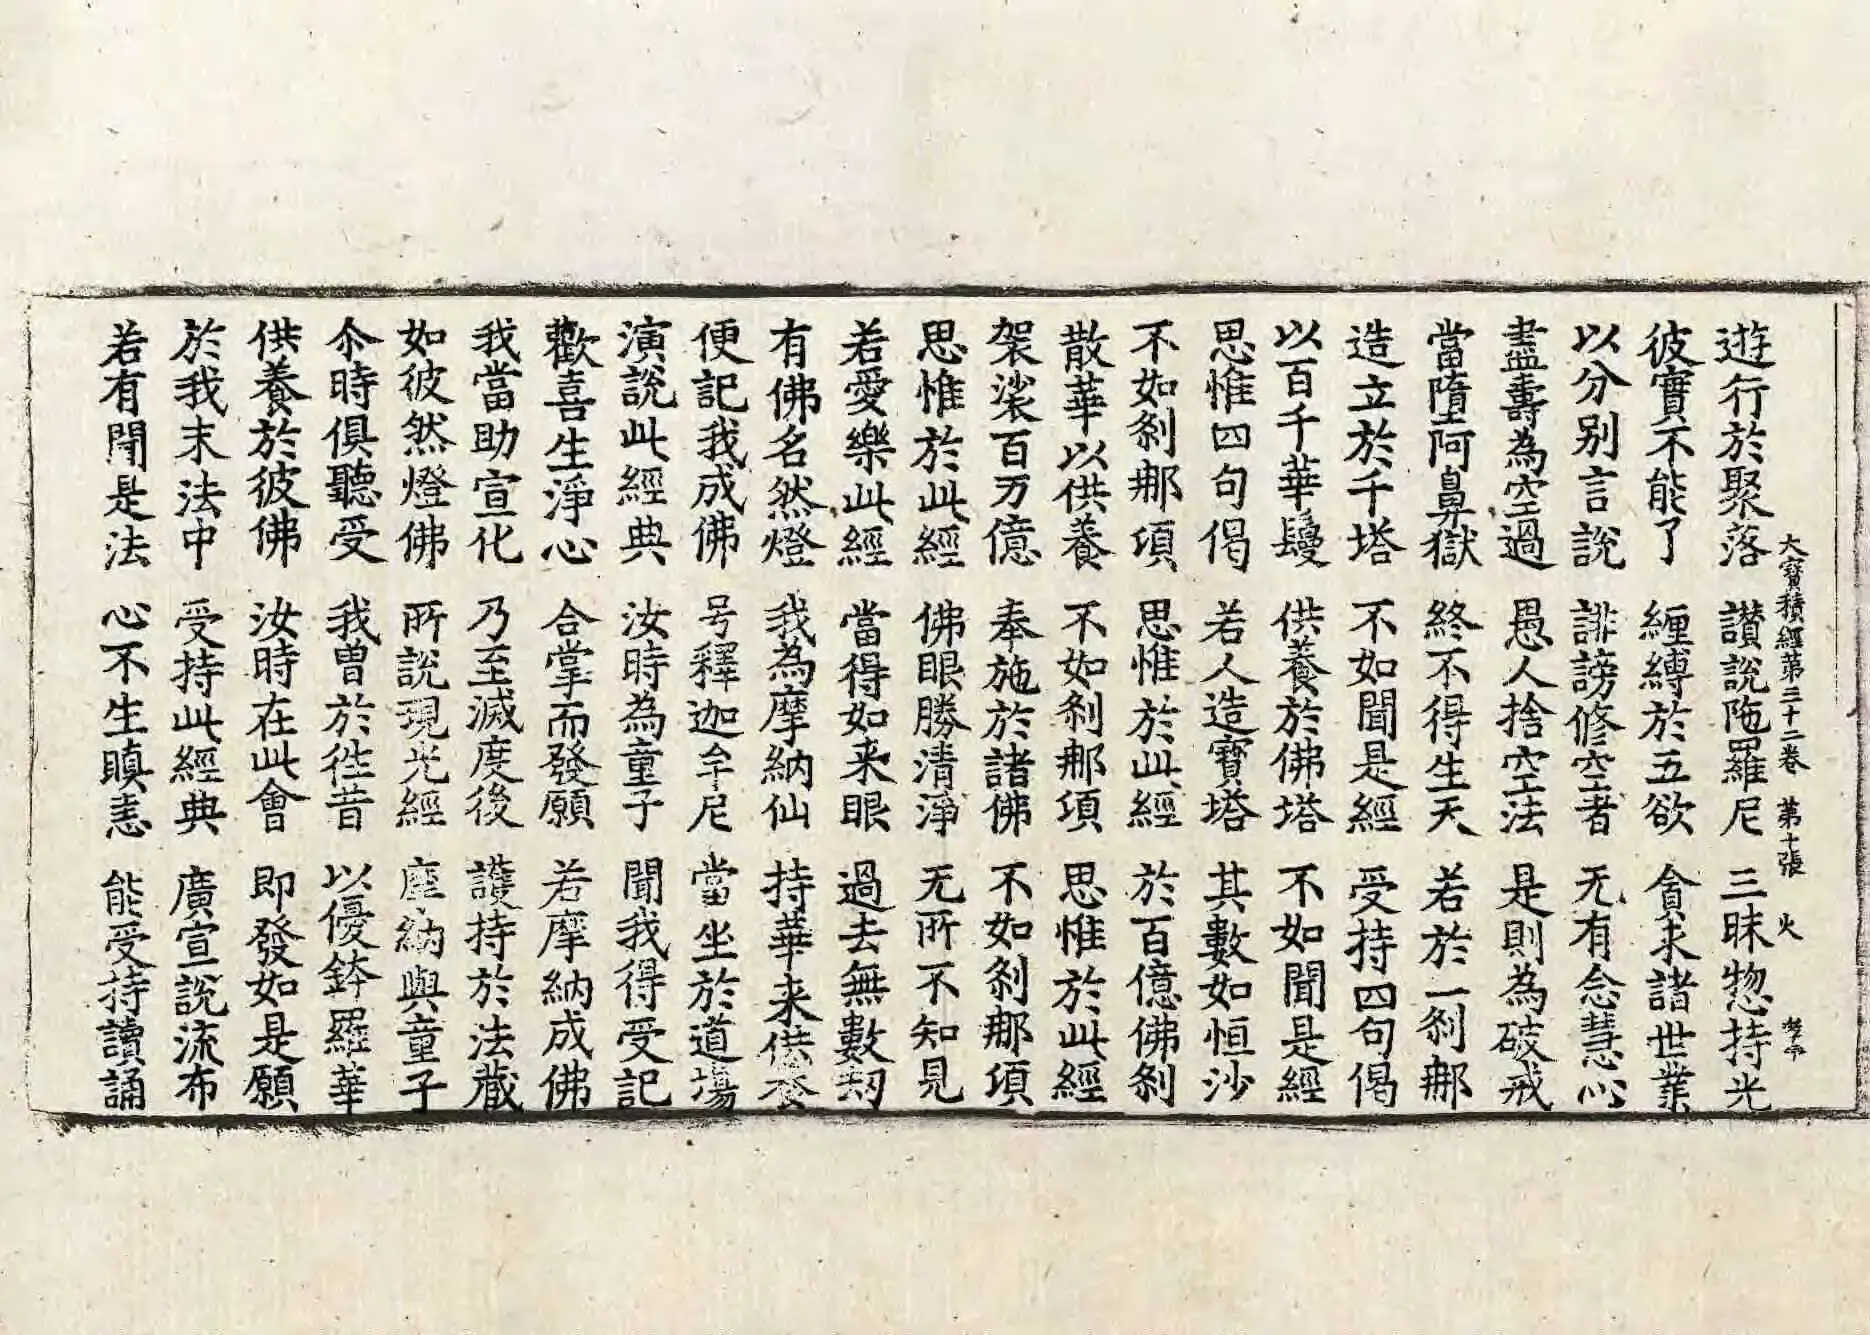 大寶積經第三十二卷 第十張 火
遊行於聚落 讃說陁羅尼 三昧惣持光
彼實不能了 纏縛於五欲 貪求諸世業
以分別言說 誹謗修空者 无有念慧心
盡壽為空過 愚人捨空法 是則為破戒
當墮阿鼻獄 終不得生天 若於一刹那
造立於千塔 不如聞是經 受持四句偈
以百千華鬘 供養於佛塔 不如聞是經
思惟四句偈 若人造寶塔 其數如恒沙
不如刹那項 思惟於此經 於百億佛刹
散華以供養 不如刹那項 思惟於此經
袈裟百万億 奉施於諸佛 不如刹那項
思惟於此經 佛眼勝清淨 无所不知見
若愛樂此經 當得如来眼 過去無數刧
有佛名然燈 我為摩納仙 持華来供養
便記我成佛 号釋迦牟尼 當坐於道場
演說此經典 汝時為童子 聞我得受記
歡喜生淨心 合掌而發願 若摩納成佛
我當助宣化 乃至滅度後 護持於法藏
如彼然燈佛 所說現光經 摩納與童子
尒時俱聽受 我曾於徃昔 以優鉢羅華
供養於彼佛 汝時在此會 即發如是願
於我末法中 受持此經典 廣宣說流布
若有聞是法 心不生瞋恚 能受持讀誦